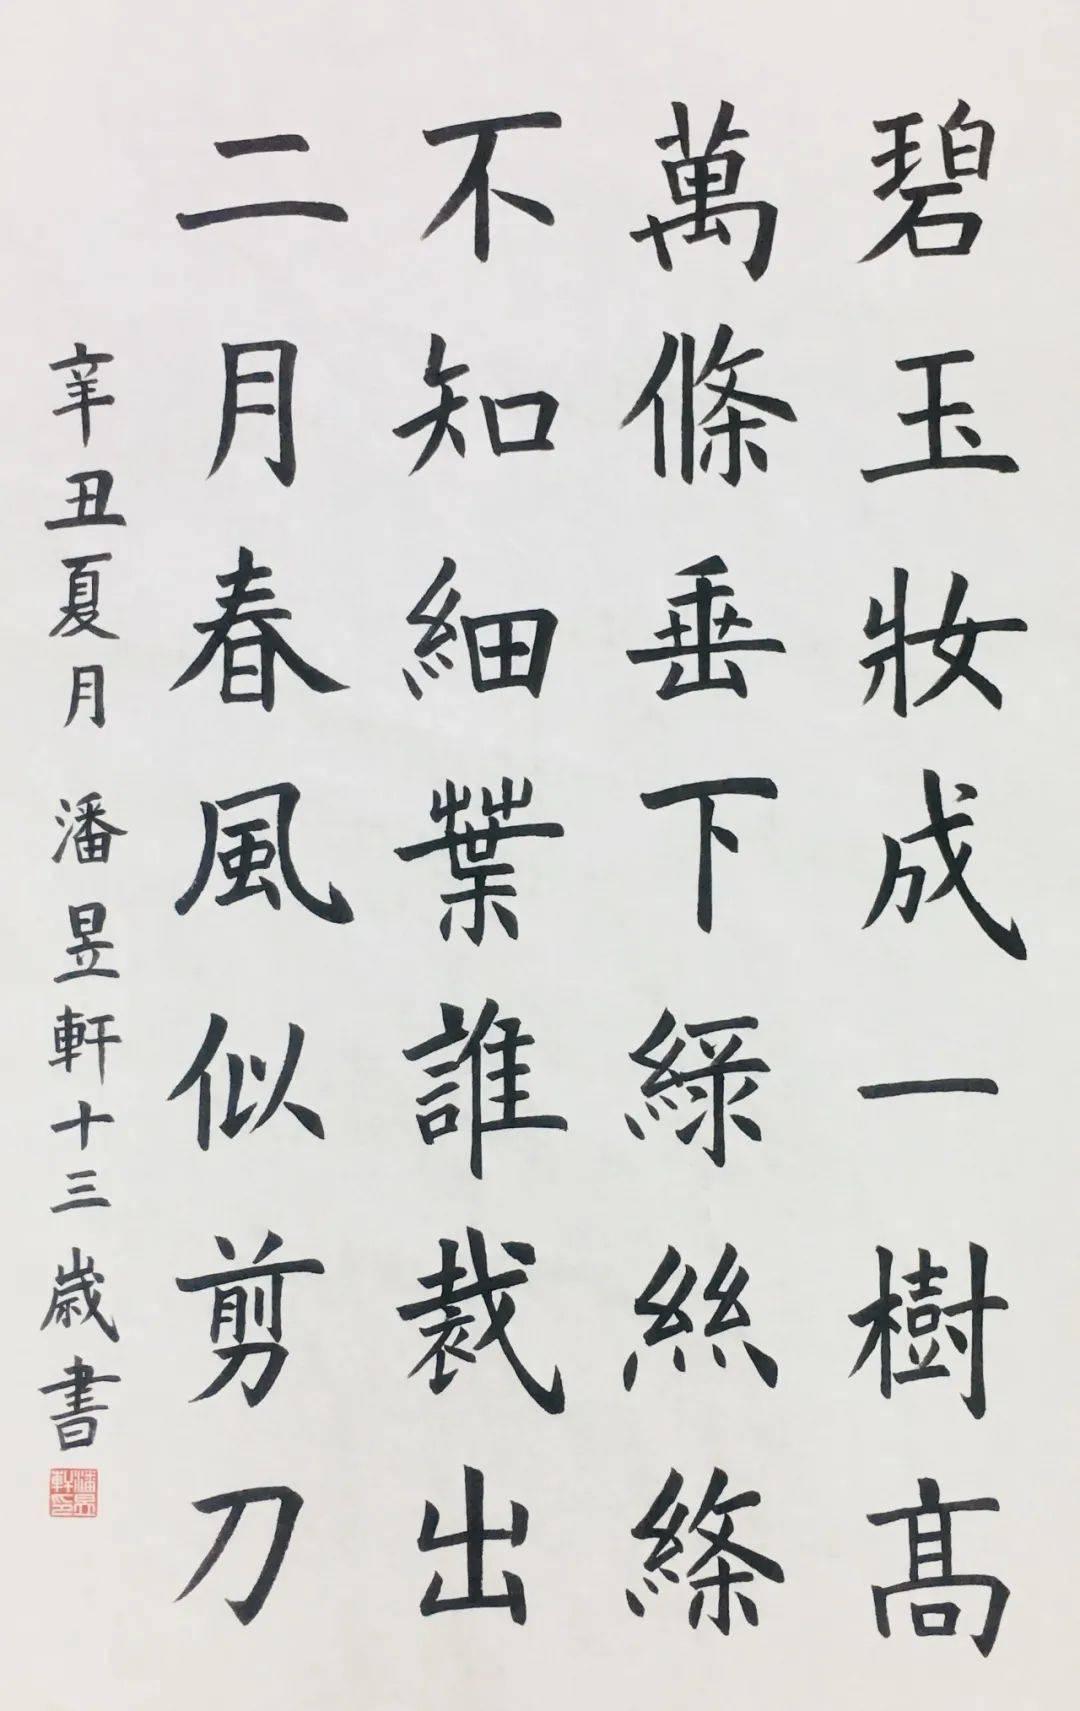 碧玉妝成一樹髙
萬條垂下緑絲絛
不知細葉誰裁出
二月春風似剪刀
辛丑夏月 潘昱軒十三歲書
潘昱軒印